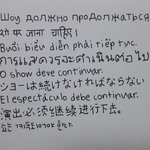 Шоу должно продолжаться
शो पर जाना चाहिए।
Buổi biểu diễn phải tiếp tục.
การแสดงควรจะดำเนินต่อไป
O show deve continuar.
ショーは続けなければならない
El espectáculo debe continuar.
演出必须继续进行下去。